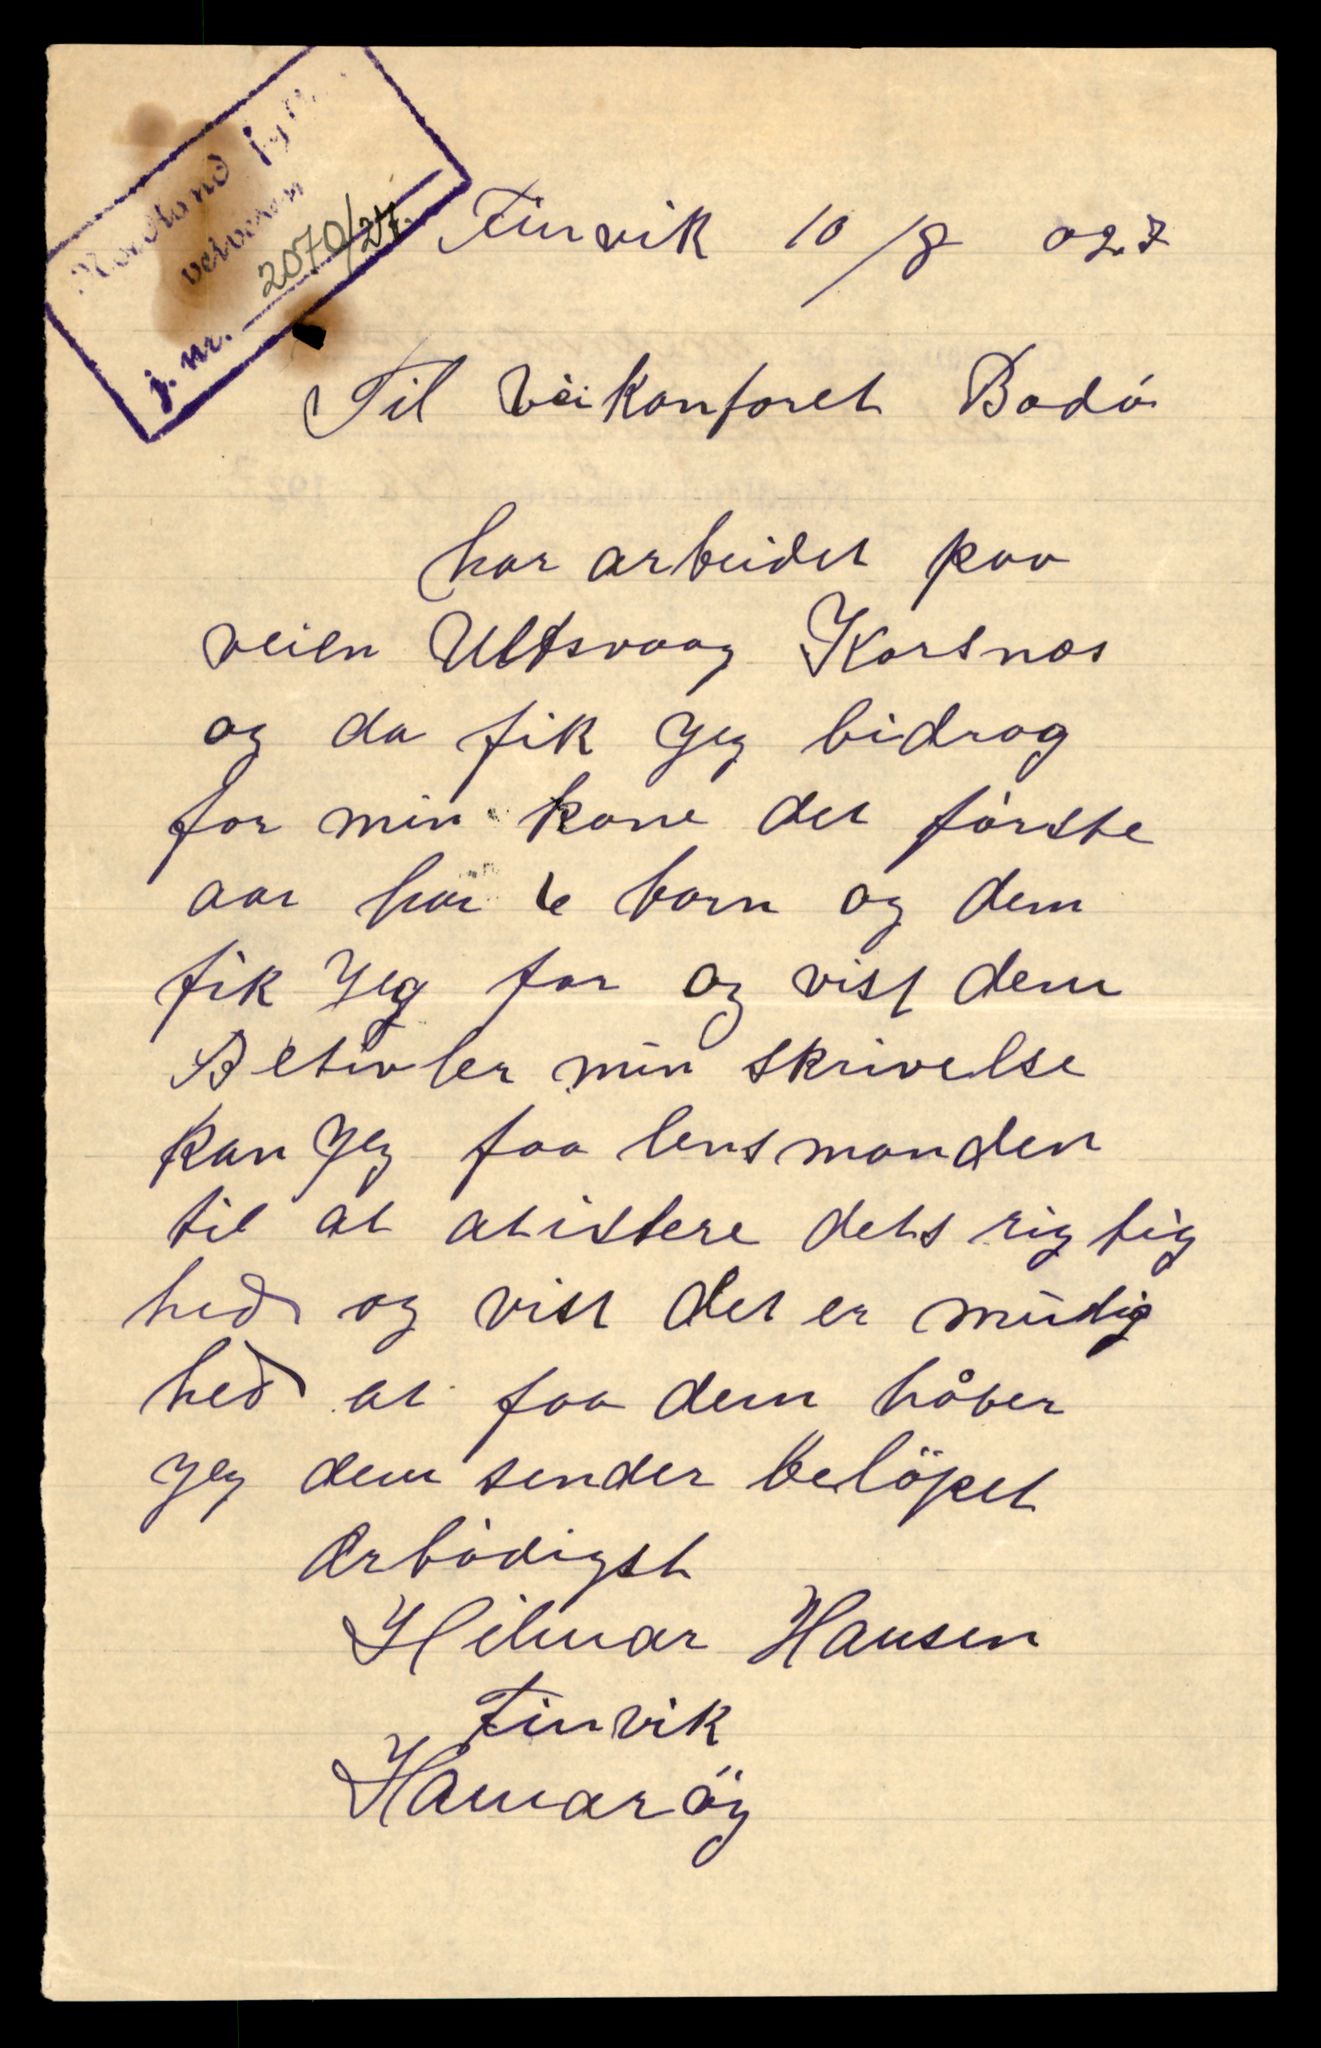 Nordland fylke
veivesen
j. nr. 2070/27.
Finvik 10/8 027
Til veikonforet Bodó
har arbeidet paa
veien Ulfsvaag Korsnæs
og da fik jeg bidrag
for min kone det fórste
aar har barn og dem
fik jeg for og vist dem
Betivler min skrivelse
kan jeg faa lensmanden
til at atistere dets rigtig
hed og vist det er mudig
hed at faa dem håber
jeg dem sender belöpet
Ærbódigst
Hilmar Hansen
Finvik
Hamaröy